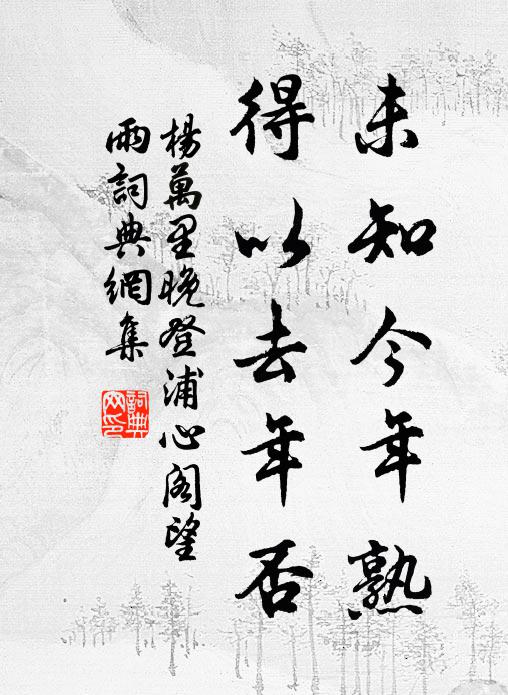 未知今年熟
得以去年否
楊萬里晚登浦心阁望
雨詞典網集
詞典
网印